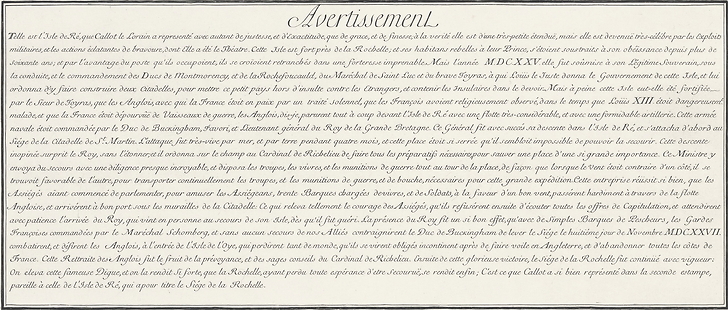 Avertissement
Telle est l'Isle de Ré, que Callot le Lorain a représenté avec autant de justesse, et d'Exactitude, que de grace, et de finesse, à la verité elle est d'une tres petite étendüe, mais elle est devenüe tres-célébre par les Exploits
militaires, et les actions éclatantes de bravoure, dont Elle a été le Théatre. Cette Isle est fort près de la Rochelle, et ses habitans rebelles à leur Prince, s'étoient soustraits à son obéissance depuis plus de
soixante ans; et par l'avantage du poste qu'ils occupoient, ils se croioient retranchés dans une forteresse imprenable. Mais l'année MDCXXV. elle fut soûmise à son Légitime Souverain, sous
la conduite, et le commandement des Ducs de Montmorency, et de la Rochefoucauld, du Maréchal de Saint Luc et du brave Toyras, à qui Loüis le Juste donna le Gouvernement de cette Isle, et lui
ordonna d'y faire construire deux Citadelles, pour mettre ce petit pays hors d'insulte contre les Etrangers, et contenir les Insulaires dans le devoir. Mais à peine cette Isle eut-elle été fortifiée
par le Sieur de Toyras, que les Anglois, avec qui la France étoit en paix par un traité solennel, que les François avoient religieusement observé, dans le temps que Loüis XIII. étoit dangereusement
malade, et que la France étoit dépourvûe de Vaisseaux de guerre, les Anglois, dis-je, parurent tout à coup devant l'Isle de Ré avec une flotte tres-considérable, et avec une formidable artillerie. Cette armée
navale étoit commandée par le Duc de Buckingham, Favori, et Lieutenant général du Roy de la Grande Bretagne. Ce Général fit avec succès sa descente dans l'Isle de Ré, et s'attacha d'abord au
Siége de la Citadelle de St. Martin. L'attaque fut tres-vive par mer, et par terre pendant quatre mois, et cette place étoit si serrée qu'il sembloit impossible de pouvoir la secourir. Cette descente
inopinée surprit le Roy, sans l'étonner, et il ordonna sur le champ au Cardinal de Richelieu de faire tous les préparatifs nécessaires, pour sauver une place d'une si grande importance. Ce Ministre y
envoya du secours avec une diligence presque incroyable, et disposa les troupes, les vivres, et les munitions de guerre tout au tour de la place, de façon que lorsque le Vent étoit contraire d'un côté, il se
trouvoit favorable de l'autre, pour transporter continuellement les troupes, et les munitions de guerre, et de bouche, nécessaires pour cette grande expédition. Cette entreprise réüssit si bien, que les
Assiégés aïant commencé de parlementer, pour amuser les Assiégeans, trente Barques chargées de vivres, et de Soldats, à la faveur d'un bon vent, passérent hardiment à travers de la flotte
Angloise, et arrivérent à bon port sous les murailles de la Citadelle. Ce qui releva tellement le courage des Assiégés, qu'ils refusérent ensuite d'écouter toutes les offres de Capitulation, et attendirent
avec patience l'arrivée du Roy, qui vint en personne au secours de son Isle, dès qu'il fut guéri. La présence du Roy fit un si bon effet, qu'avec de Simples Barques de Pecheurs, les Gardes
Françoises commandées par le Maréchal Schomberg, et sans aucun secours de nos Alliés contraignirent le Duc de Buckingham de lever le Siége le huitième jour de Novembre MDCXXVII.
combatirent, et défirent les Anglois, à l'entrée de l'Isle de l'Oye, qui perdirent tant de monde, qu'ils se virent obligés incontinent après de faire voile en Angleterre, et d'abandonner toutes les côtes de
France. Cette Rettraite des Anglois fut le fruit de la prévoyance, et des sages conseils du Cardinal de Richelieu. Ensuite de cette glorieuse victoire, le Siége de la Rochelle fut continué avec vigueur:
On eleva cette fameuse Digue, et on la rendit si forte, que la Rochelle, ayant perdu toute espérance d'etre secourüe, se rendit enfin; C'est ce que Callot a si bien représenté dans la seconde estampe,
pareille à celle de l'Isle de Ré, qui a pour titre le Siége de la Rochelle.